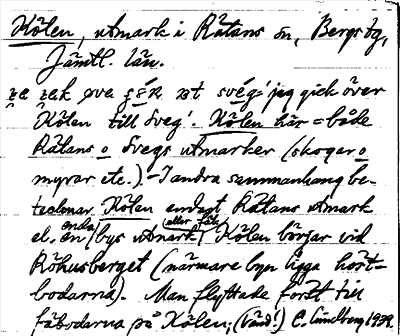 Kölen, utmark i Rätans sn, Bergs tg,
Jämtl. län.
över
Kölen till Sveg'. Kölen här = både
Rätans o Svegs utmarker (skogar o
myrar etc.). – I andra sammanhang be-
tecknar Kölen endast Rätans utmark
el. enda (eller fäb.)
en (bys utmark) Kölen börjar vid
Röhusberget (närmare byn ligga höst-
bodarna). Man flyttade först till
fäbodarna på Kölen; (vård!) C. Lundberg 1939.